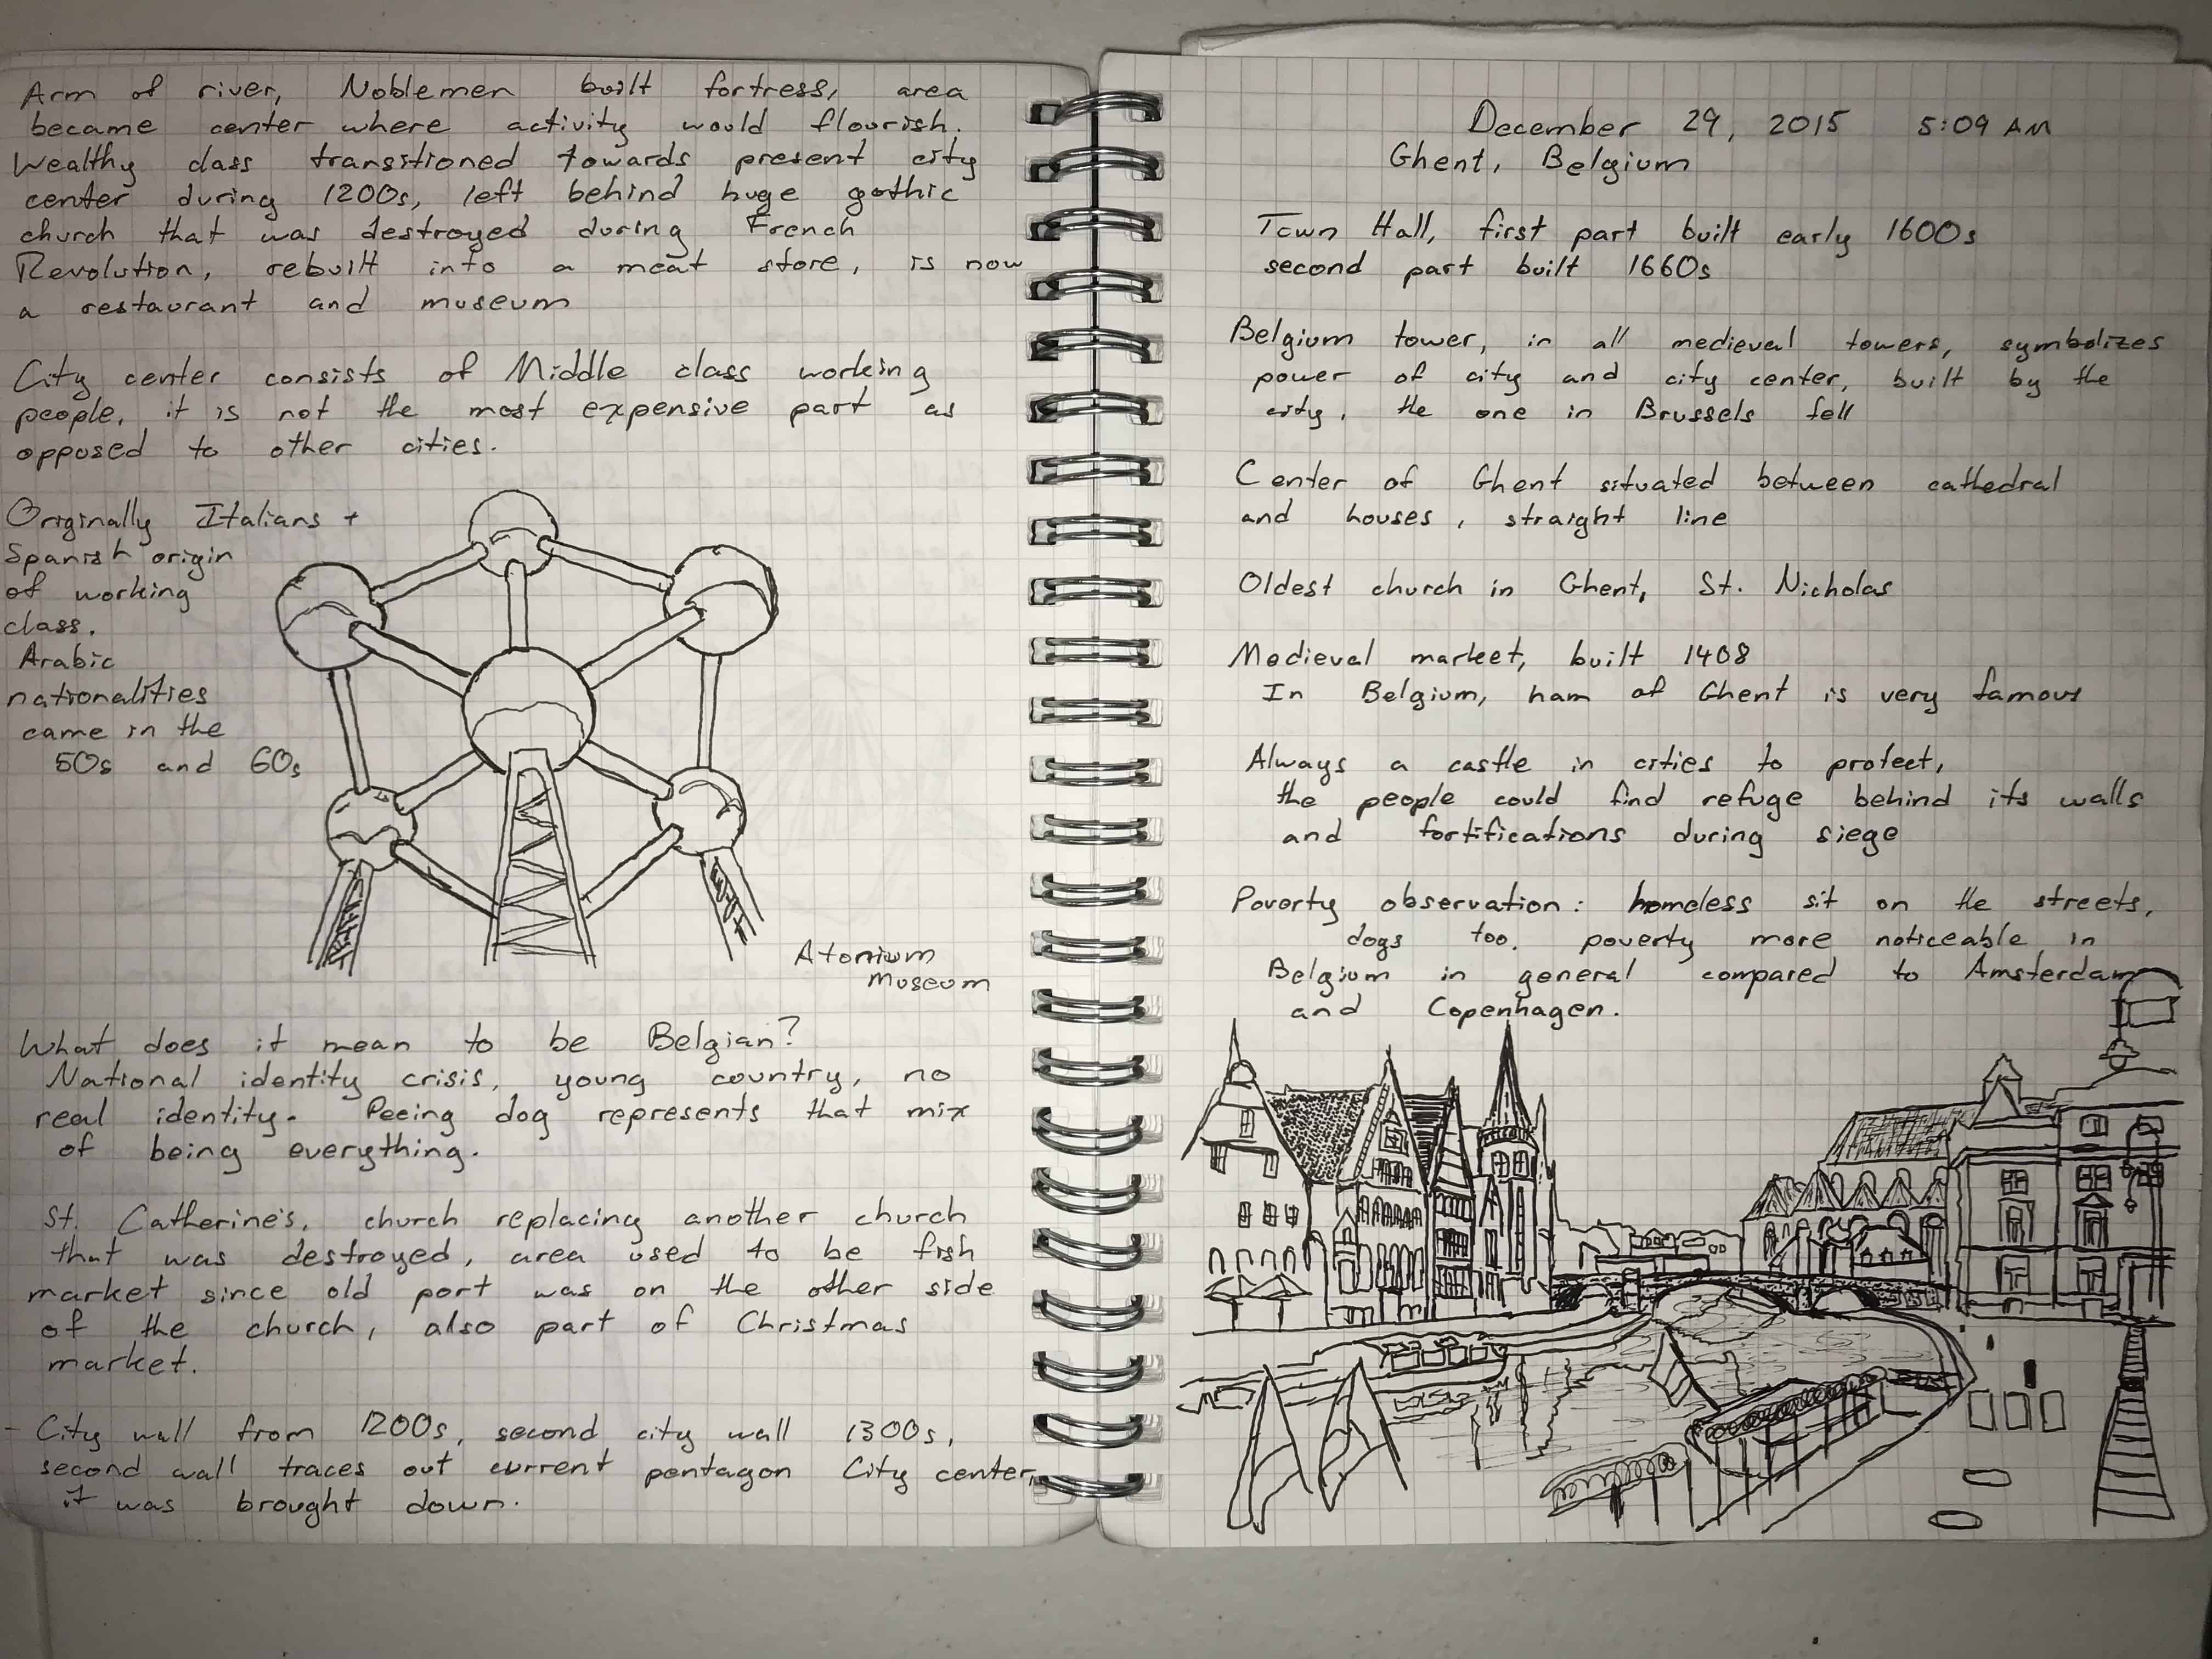 Arm of river, Noblemen built fortress, area
became center where activity would flourish.
Wealthy class transitioned towards present city
center during 1200s, left behind huge gothic
church that was destroyed during French
Revolution, rebuilt into a meat store, is now
a restaurant and museum
City center consists of Middle class working
people, it is not the most expensive part as
opposed to other cities.
Originally Italians +
Spanish origin
of working
class.
Arabic
nationalities
came in the
50s and 60s
Atomium
Museum
What does it mean to be Belgian?
National identity crisis, young country, no
real identity. Peeing dog represents that mix
of being everything.
St. Catherine's, church replacing another church
that was destroyed, area used to be fish
market since old port was on the other side
of the church, also part of Christmas
market.
- City wall from 1200s, second city wall 1300s,
second wall traces out current pentagon City center,
it was brought down.
December 29, 2015 5:09 AM
Ghent, Belgium
Town Hall, first part built early 1600s
second part built 1660s
Belgium tower, in all medieval towers, symbolizes
power of city and city center, built by the
city, the one in Brussels fell
Center of Ghent situated between cathedral
and houses, straight line
Oldest church in Ghent, St. Nicholas
Medieval market, built 1408
In Belgium, ham of Ghent is very famous
Always a castle in cities to protect,
the people could find refuge behind its walls
and fortifications during siege
Poverty observation: homeless sit on the streets,
dogs too. poverty more noticeable in
Belgium in general compared to Amsterdam
and Copenhagen.